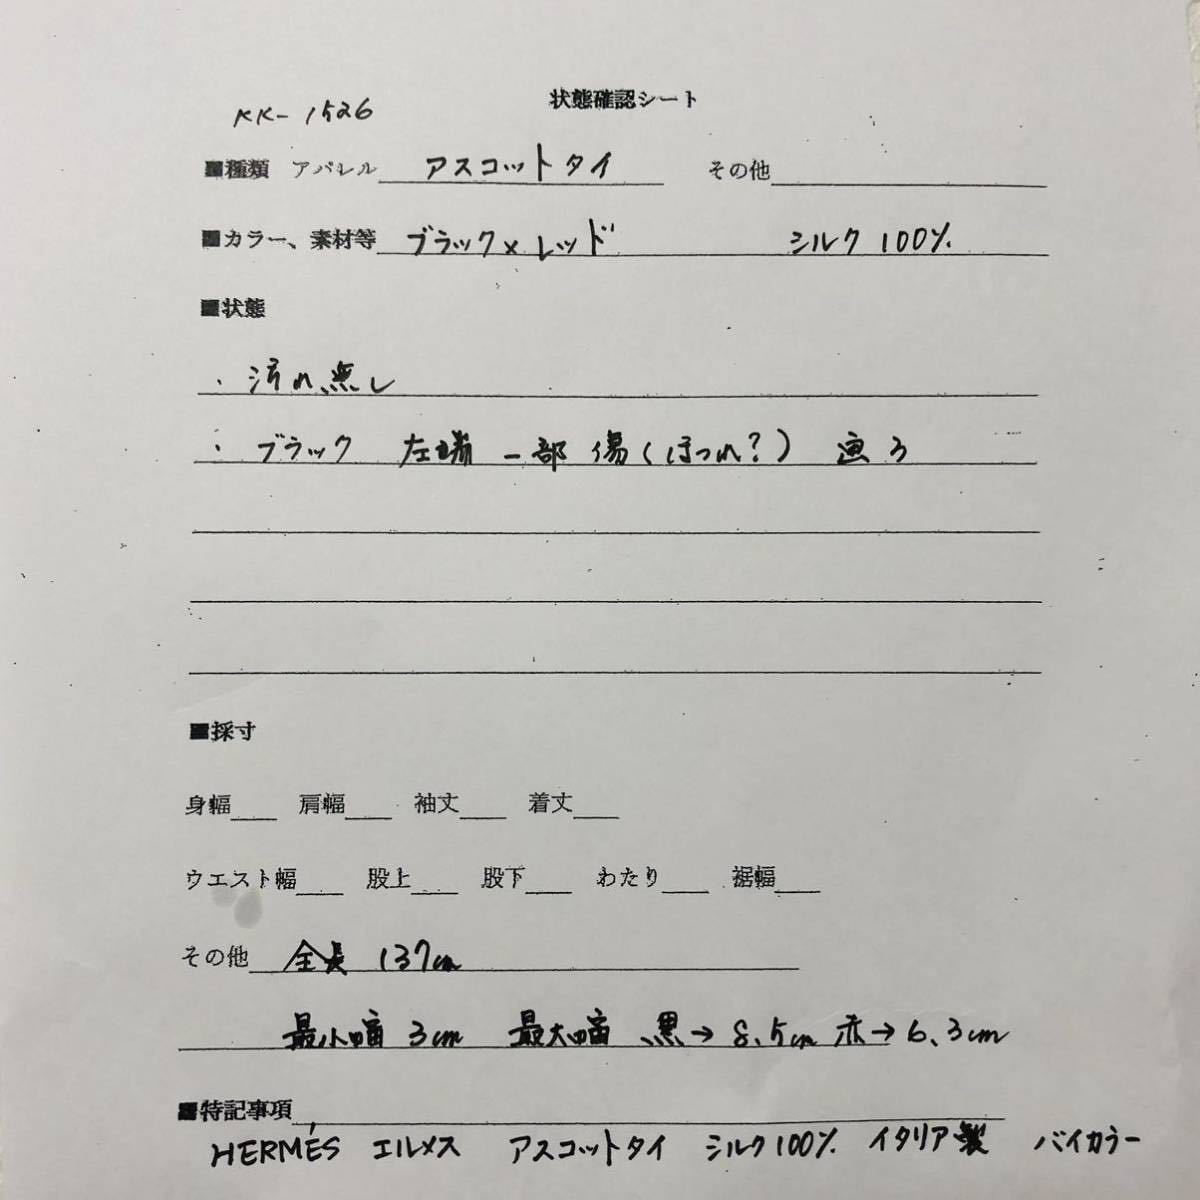 状態確認シート
KK-1526
■種類 アパレル アスコットタイ その他
■カラー、素材等 ブラック×レッド シルク100%
■状態
・汚れ無し
・ブラック 左端 一部傷(ほつれ?) 画3
■採寸
身幅 肩幅 袖丈 着丈
ウエスト幅 股上 股下 わたり 裾幅
その他 全長 137cm
最小幅 3cm 最大幅 黒→8.5cm 赤→6.3cm
■特記事項
HERMÉS エルメス アスコットタイ シルク100% イタリア製 バイカラー